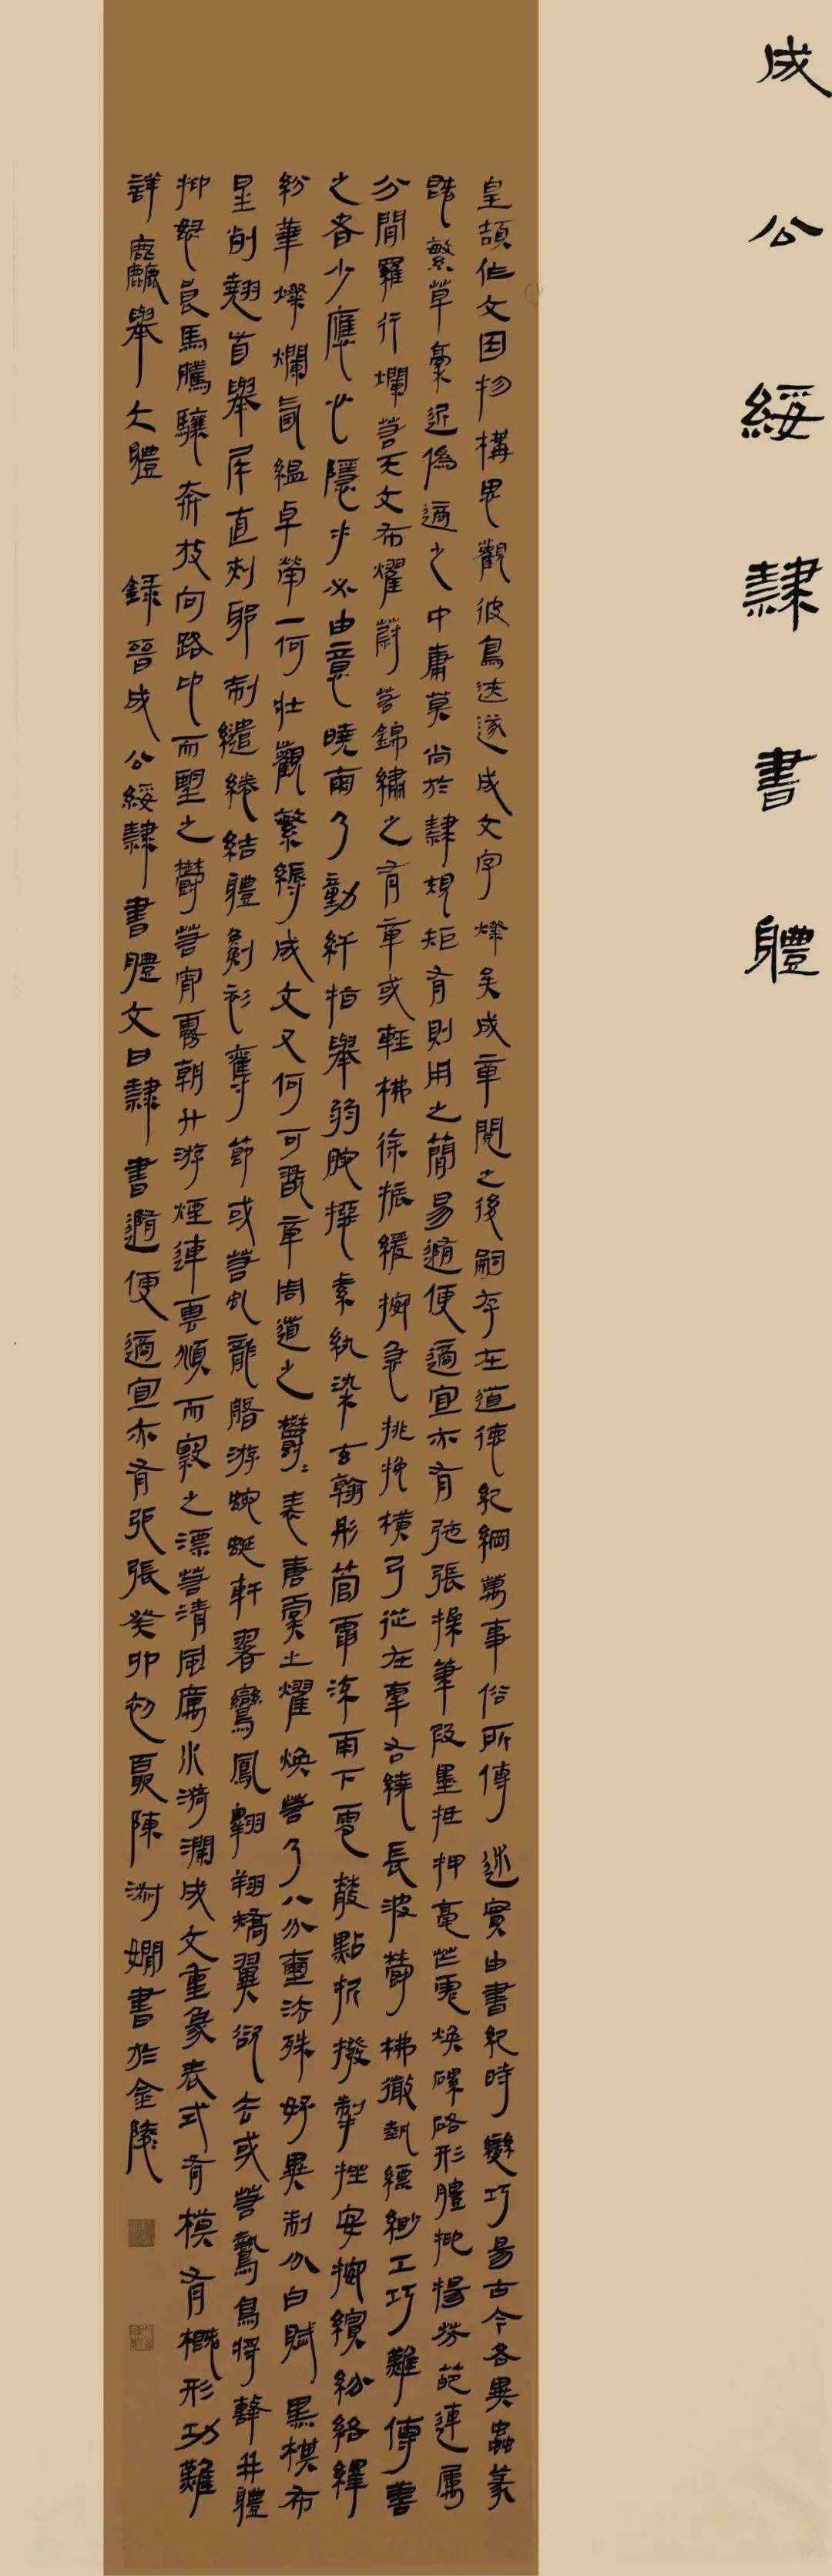 成公綏隸書體
皇頡作文因物構思觀彼鳥迹遂成文字燦矣成章閱之後嗣存在道德紀綱萬事俗所傳述實由書紀時變巧易古今各異蟲篆
既繁草藁近偽適之中庸莫尚於隸規矩有則用之簡易隨便適宜亦有弛張操筆假墨抵押毫芒彪煥磥硌形體抑揚芬葩連屬
分間羅行爛若天文布燿蔚若錦繡之有章或輕拂徐振緩按急挑挽橫引從左牽右繞長波鬱拂微勢縹緲工巧難傳善
之者少應心隱手必由意曉爾乃動纤指舉弱腕握素紈染玄翰彤管電流雨下雹散點挀撥掣挃安按繽紛絡繹
紛華燦爛氤縕卓犖一何壯觀繁縟成文又何可翫章周道之鬱鬱表唐虞之燿煥若乃八分璽法殊好異制分白賦黑棋布
星列翹首舉尾直刺邪制繾綣結體劖衫奪節或若虬龍盤游蜿蜒軒翥鸞鳳翱翔矯翼欲去或若鷙鳥將擊并體
抑怒良馬騰驤奔放向路仰而望之鬱若宵霧朝升游煙連雲俯而察之漂若清風厲水漪瀾成文垂象表式有模有概形功難
詳麤舉大體 錄晉成公綏隸書體文曰隸書隨便適宜亦有弛張癸卯初夏陳澍嫻書於金陵